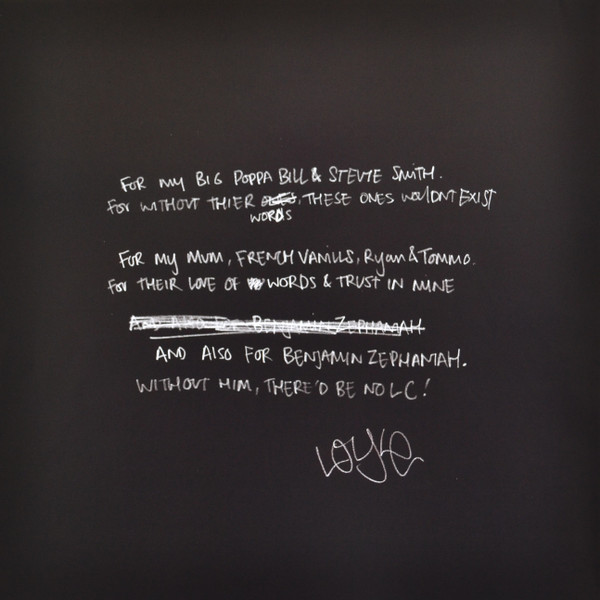 FOR MY BIG POPPA BILL & STEVIE SMITH.
FOR WITHOUT THIER WORDS, THESE ONES WOULDNT EXIST
FOR MY MUM, FRENCH VANILLS, Ryan & TOMMO.
FOR THEIR LOVE OF WORDS & TRUST IN MINE
AND ALSO FOR BENJAMIN ZEPHANIAH
AND ALSO FOR BENJAMIN ZEPHANIAH.
WITHOUT HIM, THERE'D BE NO LC!
Loyle